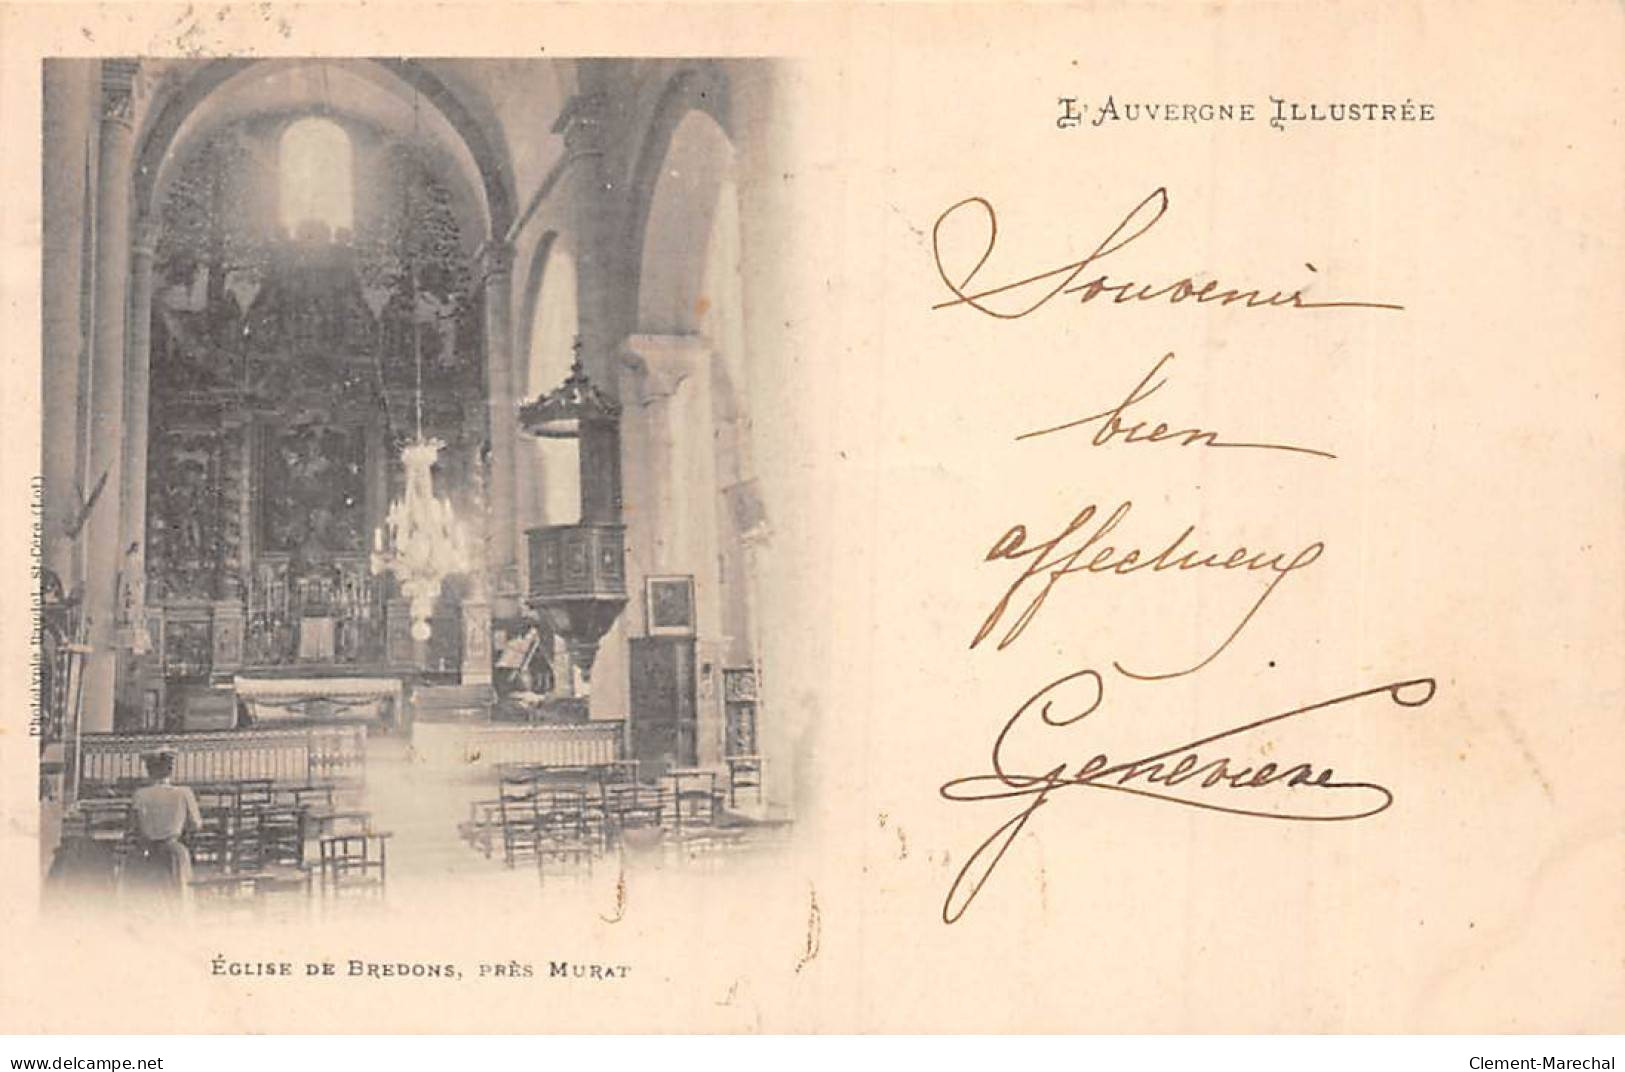 L'Auvergne Illustrée
Souvenir
bien
affectueux
Geneviève
Phototypie Baudel, St-Céré (Lot)
Église de Bredons, près Murat
delcampe.net
Clement-Marechal